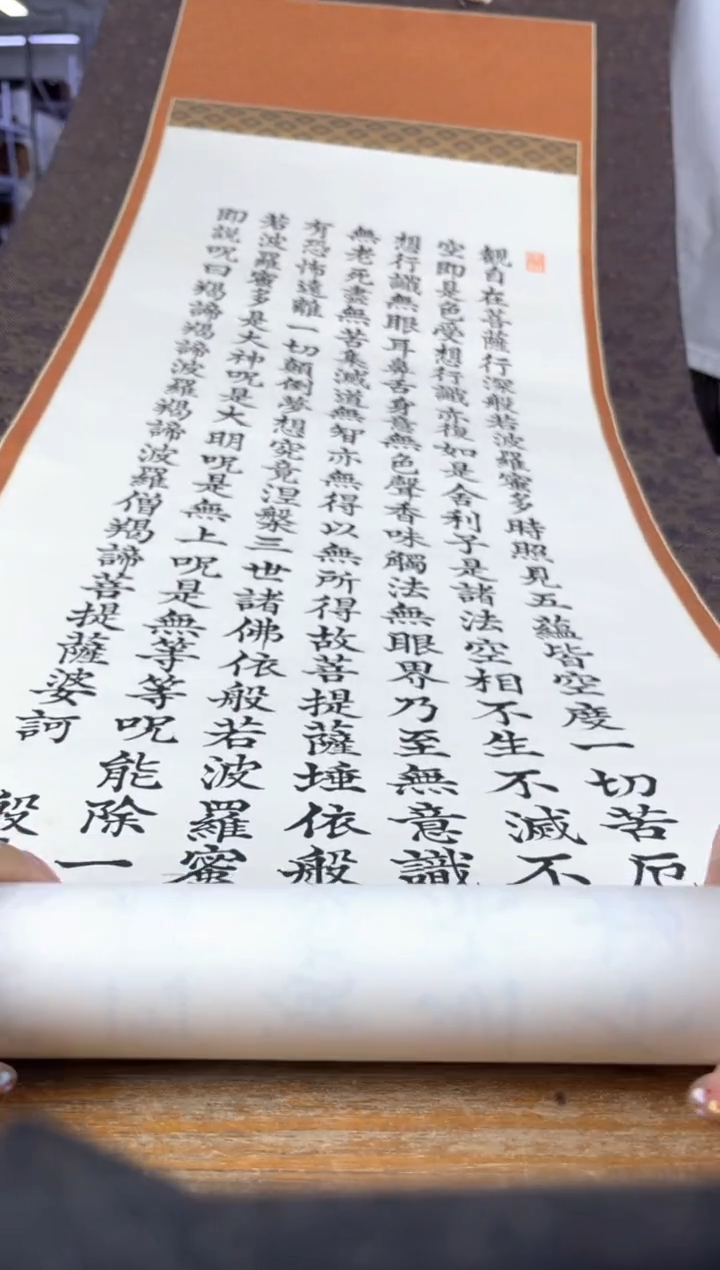 観自在菩薩行深般若波羅蜜多時照見五蘊皆空度一切苦厄
空即是色受想行識亦復如是舍利子是諸法空相不生不滅不
想行識無眼耳鼻舌身意無色聲香味觸法無眼界乃至無意識
無老死盡無苦集滅道無智亦無得以無所得故菩提薩埵依般
有恐怖遠離一切顛倒夢想究竟涅槃三世諸佛依般若波羅蜜
若波羅蜜多是大神呪是大明呪是無上呪是無等等呪能除一
即說呪曰羯諦羯諦波羅羯諦波羅僧羯諦菩提薩婆訶 般